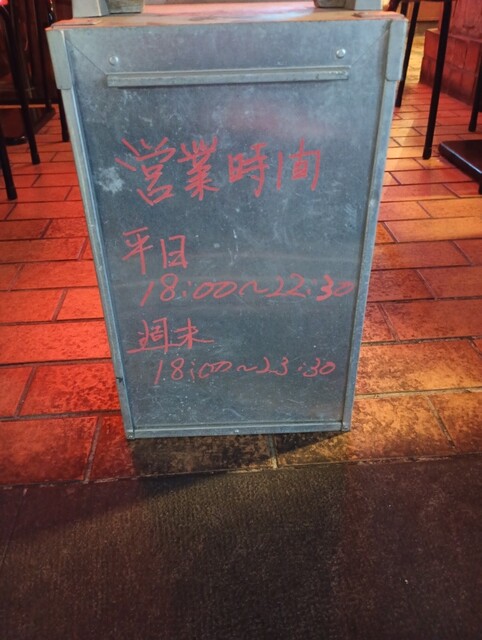 営業時間
平日
18:00～22:30
週末
18:00～23:30